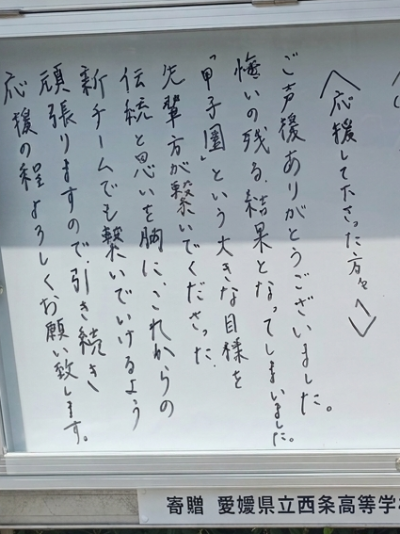 〈応援して下さった方々へ〉
ご声援ありがとうございました。
悔いの残る結果となってしまいました。
「甲子園」という大きな目標を
先輩方が繋いでくださった
伝統と思いを胸に、これからの
新チームでも繋いでいけるよう
頑張りますので、引き続き
応援の程よろしくお願い致します。
寄贈 愛媛県立西条高等学校